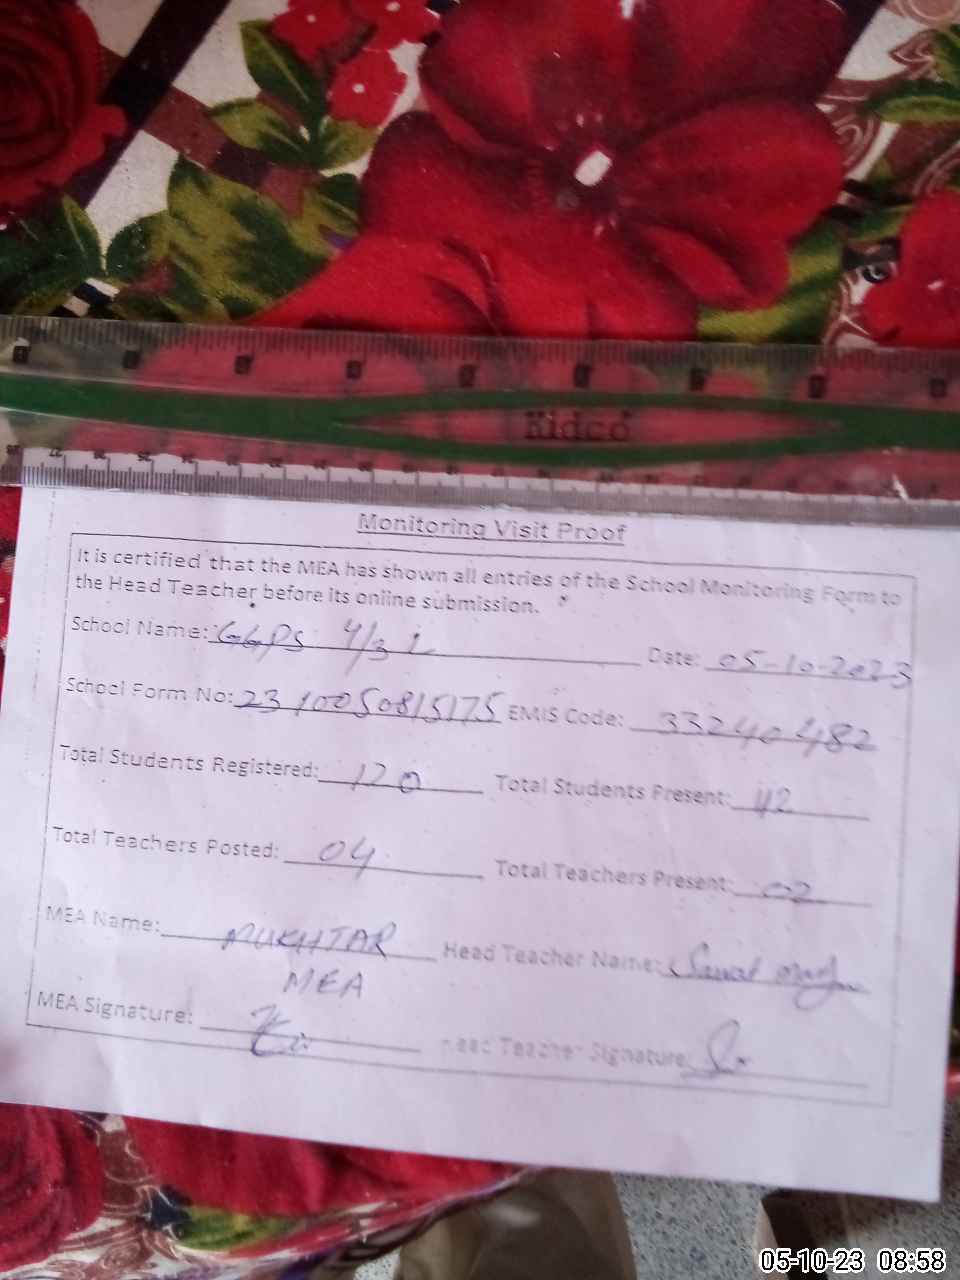 Kidco
Monitoring Visit Proof
It is certified that the MEA has shown all entries of the School Monitoring Form to
the Head Teacher before its online submission.
School Name: GGPS 4/3 L Date: 05-10-2023
School Form No: 2310050815175 EMIS Code: 33240482
Total Students Registered: 120 Total Students Present: 112
Total Teachers Posted: 04 Total Teachers Present: 02
MEA Name: MUKHTAR Head Teacher Name:
MEA
MEA Signature: Head Teacher Signature:
05-10-23 08:58